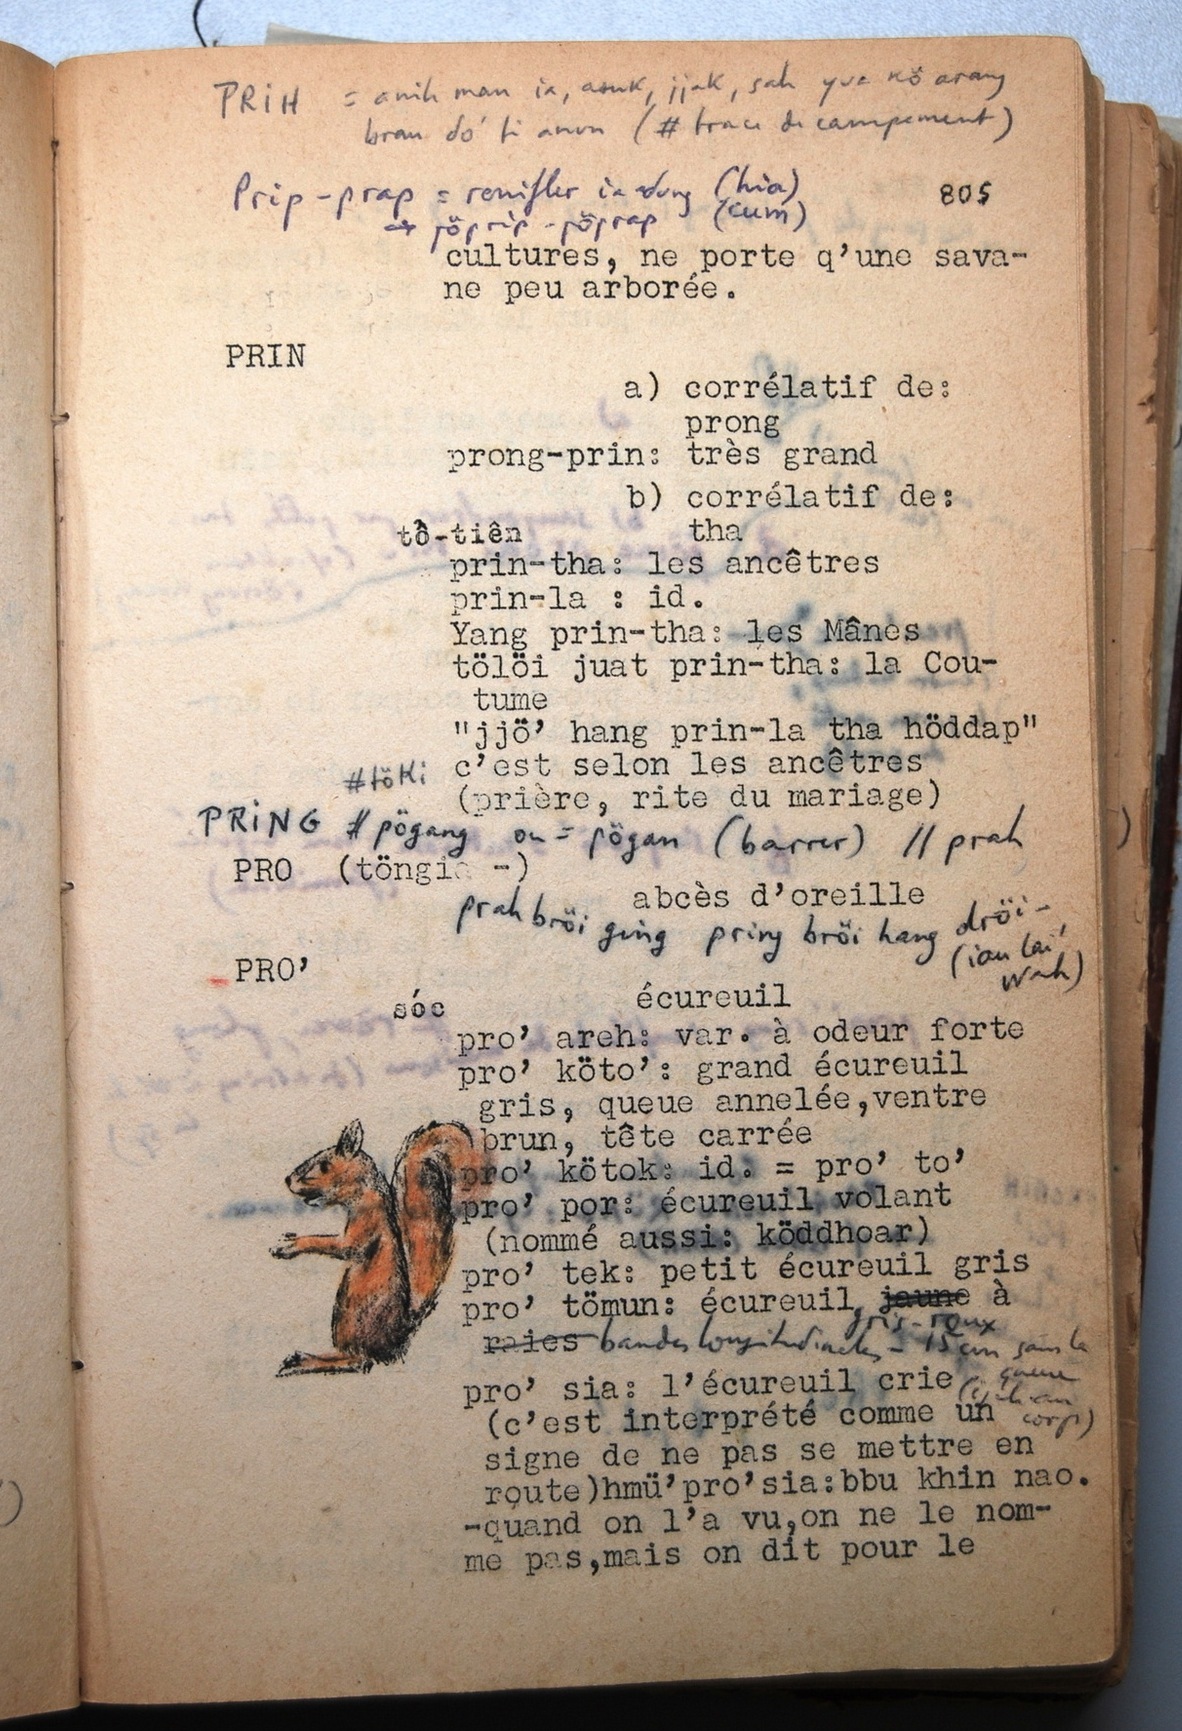 PRIH = anih man ia, asuk, jjak, sah yua kö arang
brau dó ti anun (# trace de campement)
Prip-prap = renifler ia adung (hia)
805
→ pöprip-pöprap (cum)
cultures, ne porte q'une sava-
ne peu arborée.
PRIN
a) corrélatif de:
prong
prong-prin: très grand
b) corrélatif de:
tổ-tiên tha
prin-tha: les ancêtres
prin-la : id.
Yang prin-tha: les Mânes
tölöi juat prin-tha: la Cou-
tume
"jjö' hang prin-la tha höddap"
c'est selon les ancêtres
#töki
(prière, rite du mariage)
PRING # pögang ou = pögan (barrer) // prah
PRO (töngia -)
abcès d'oreille
prah bröi ging pring bröi hang dröi-
(iau lai,
wah)
PRO'
sóc écureuil
pro' areh: var. à odeur forte
pro' köto': grand écureuil
gris, queue annelée,ventre
brun, tête carrée
pro' kötok: id. = pro' to'
pro' por: écureuil volant
(nommé aussi: köddhoar)
pro' tek: petit écureuil gris
pro' tömun: écureuil jaune à
gris-roux
raies bandes longitudinales - 15 cm sans la
queue
pro' sia: l'écureuil crie
(c'est interprété comme un
corps)
signe de ne pas se mettre en
route)hmü'pro'sia:bbu khin nao.
-quand on l'a vu,on ne le nom-
me pas,mais on dit pour le